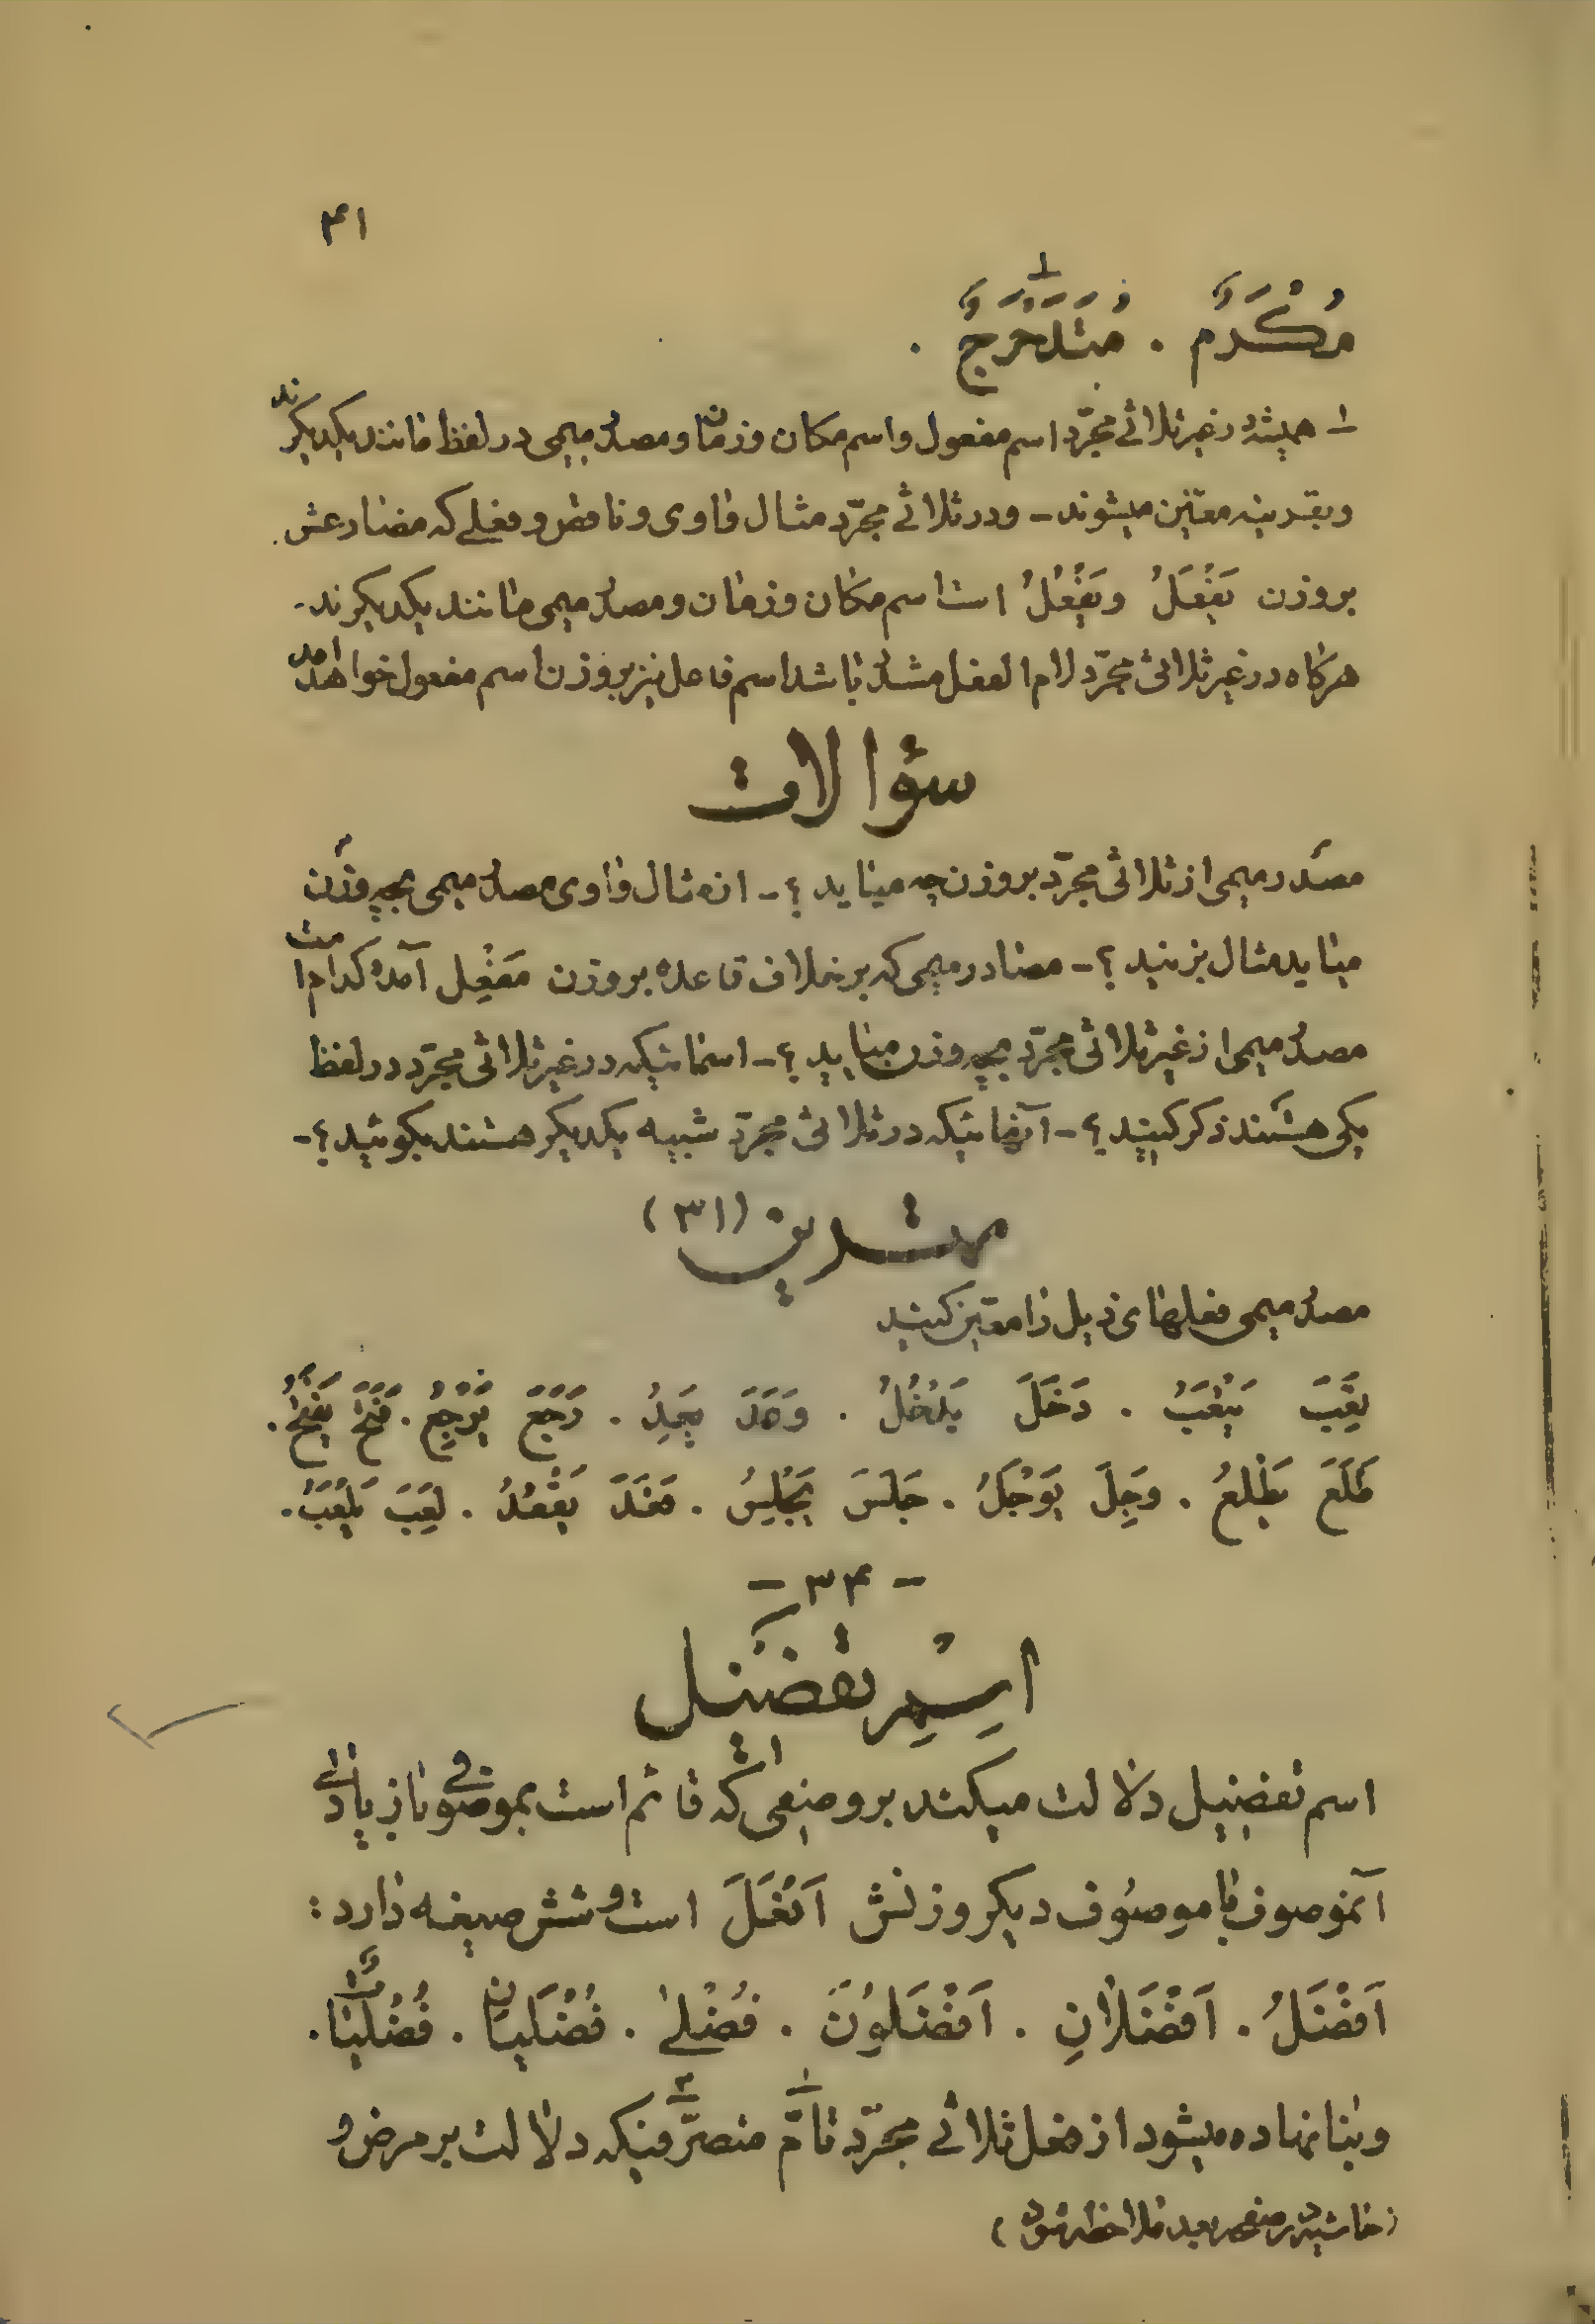 ۴۱
مُكْرَمٌ . مُتَدَحْرَجٌ .
۱ـ همیشه در غیر ثلاثی مجرّد اسم مفعول و اسم مکان و زمان و مصدر میمی در لفظ مانند یکدیگرند
و بقرینه معیّن میشوند ـ و در ثلاثی مجرّد مثال واوی و ناقص و فعلی که مضارعش
بر وزن یَفْعَلُ و یَفْعُلُ است اسم مکان و زمان و مصدر میمی مانند یکدیگرند.
هرگاه در غیر ثلاثی مجرّد لام الفعل مشدّد باشد اسم فاعل نیز بر وزن اسم مفعول خواهد آمد
سؤالات
مصدر میمی از ثلاثی مجرّد بر وزن چه میاید ؟ ـ از مثال واوی مصدر میمی بچه وزن
میاید مثال بزنید ؟ ـ مصادر میمی که برخلاف قاعده بر وزن مَفْعِل آمده کدام است
مصدر میمی از غیر ثلاثی مجرّد بچه وزن میاید ؟ ـ اسمائیکه در غیر ثلاثی مجرّد در لفظ
یکی هستند ذکر کنید ؟ ـ آنهائیکه در ثلاثی مجرّد شبیه یکدیگر هستند بگوئید ؟ ـ
تمرین (۳۱)
مصدر میمی فعلهای ذیل را معیّن کنید
تَعِبَ یَتْعَبُ . دَخَلَ یَدْخُلُ . وَجَدَ یَجِدُ . رَجَعَ یَرْجِعُ . فَتَحَ یَفْتَحُ .
طَلَعَ یَطْلُعُ . وَجِلَ یَوْجَلُ . جَلَسَ یَجْلِسُ . قَعَدَ یَقْعُدُ . لَعِبَ یَلْعَبُ .
ـ ۳۴ ـ
اسم تفضیل
اسم تفضیل دلالت میکند بر وصفی که قائم است بموصوفی با زیادتی
آنموصوف با موصوف دیگر وزنش اَفْعَلَ است و شش صیغه دارد :
اَفْضَلُ . اَفْضَلانِ . اَفْضَلوُنَ . فُضْلیٰ . فُضْلَیانِ . فُضْلَیاتٌ .
و بنا نهاده میشود از فعل ثلاثی مجرّد تامّ متصرّفیکه دلالت بر مرض و
(حاشیه در صفحه بعد ملاحظه شود)